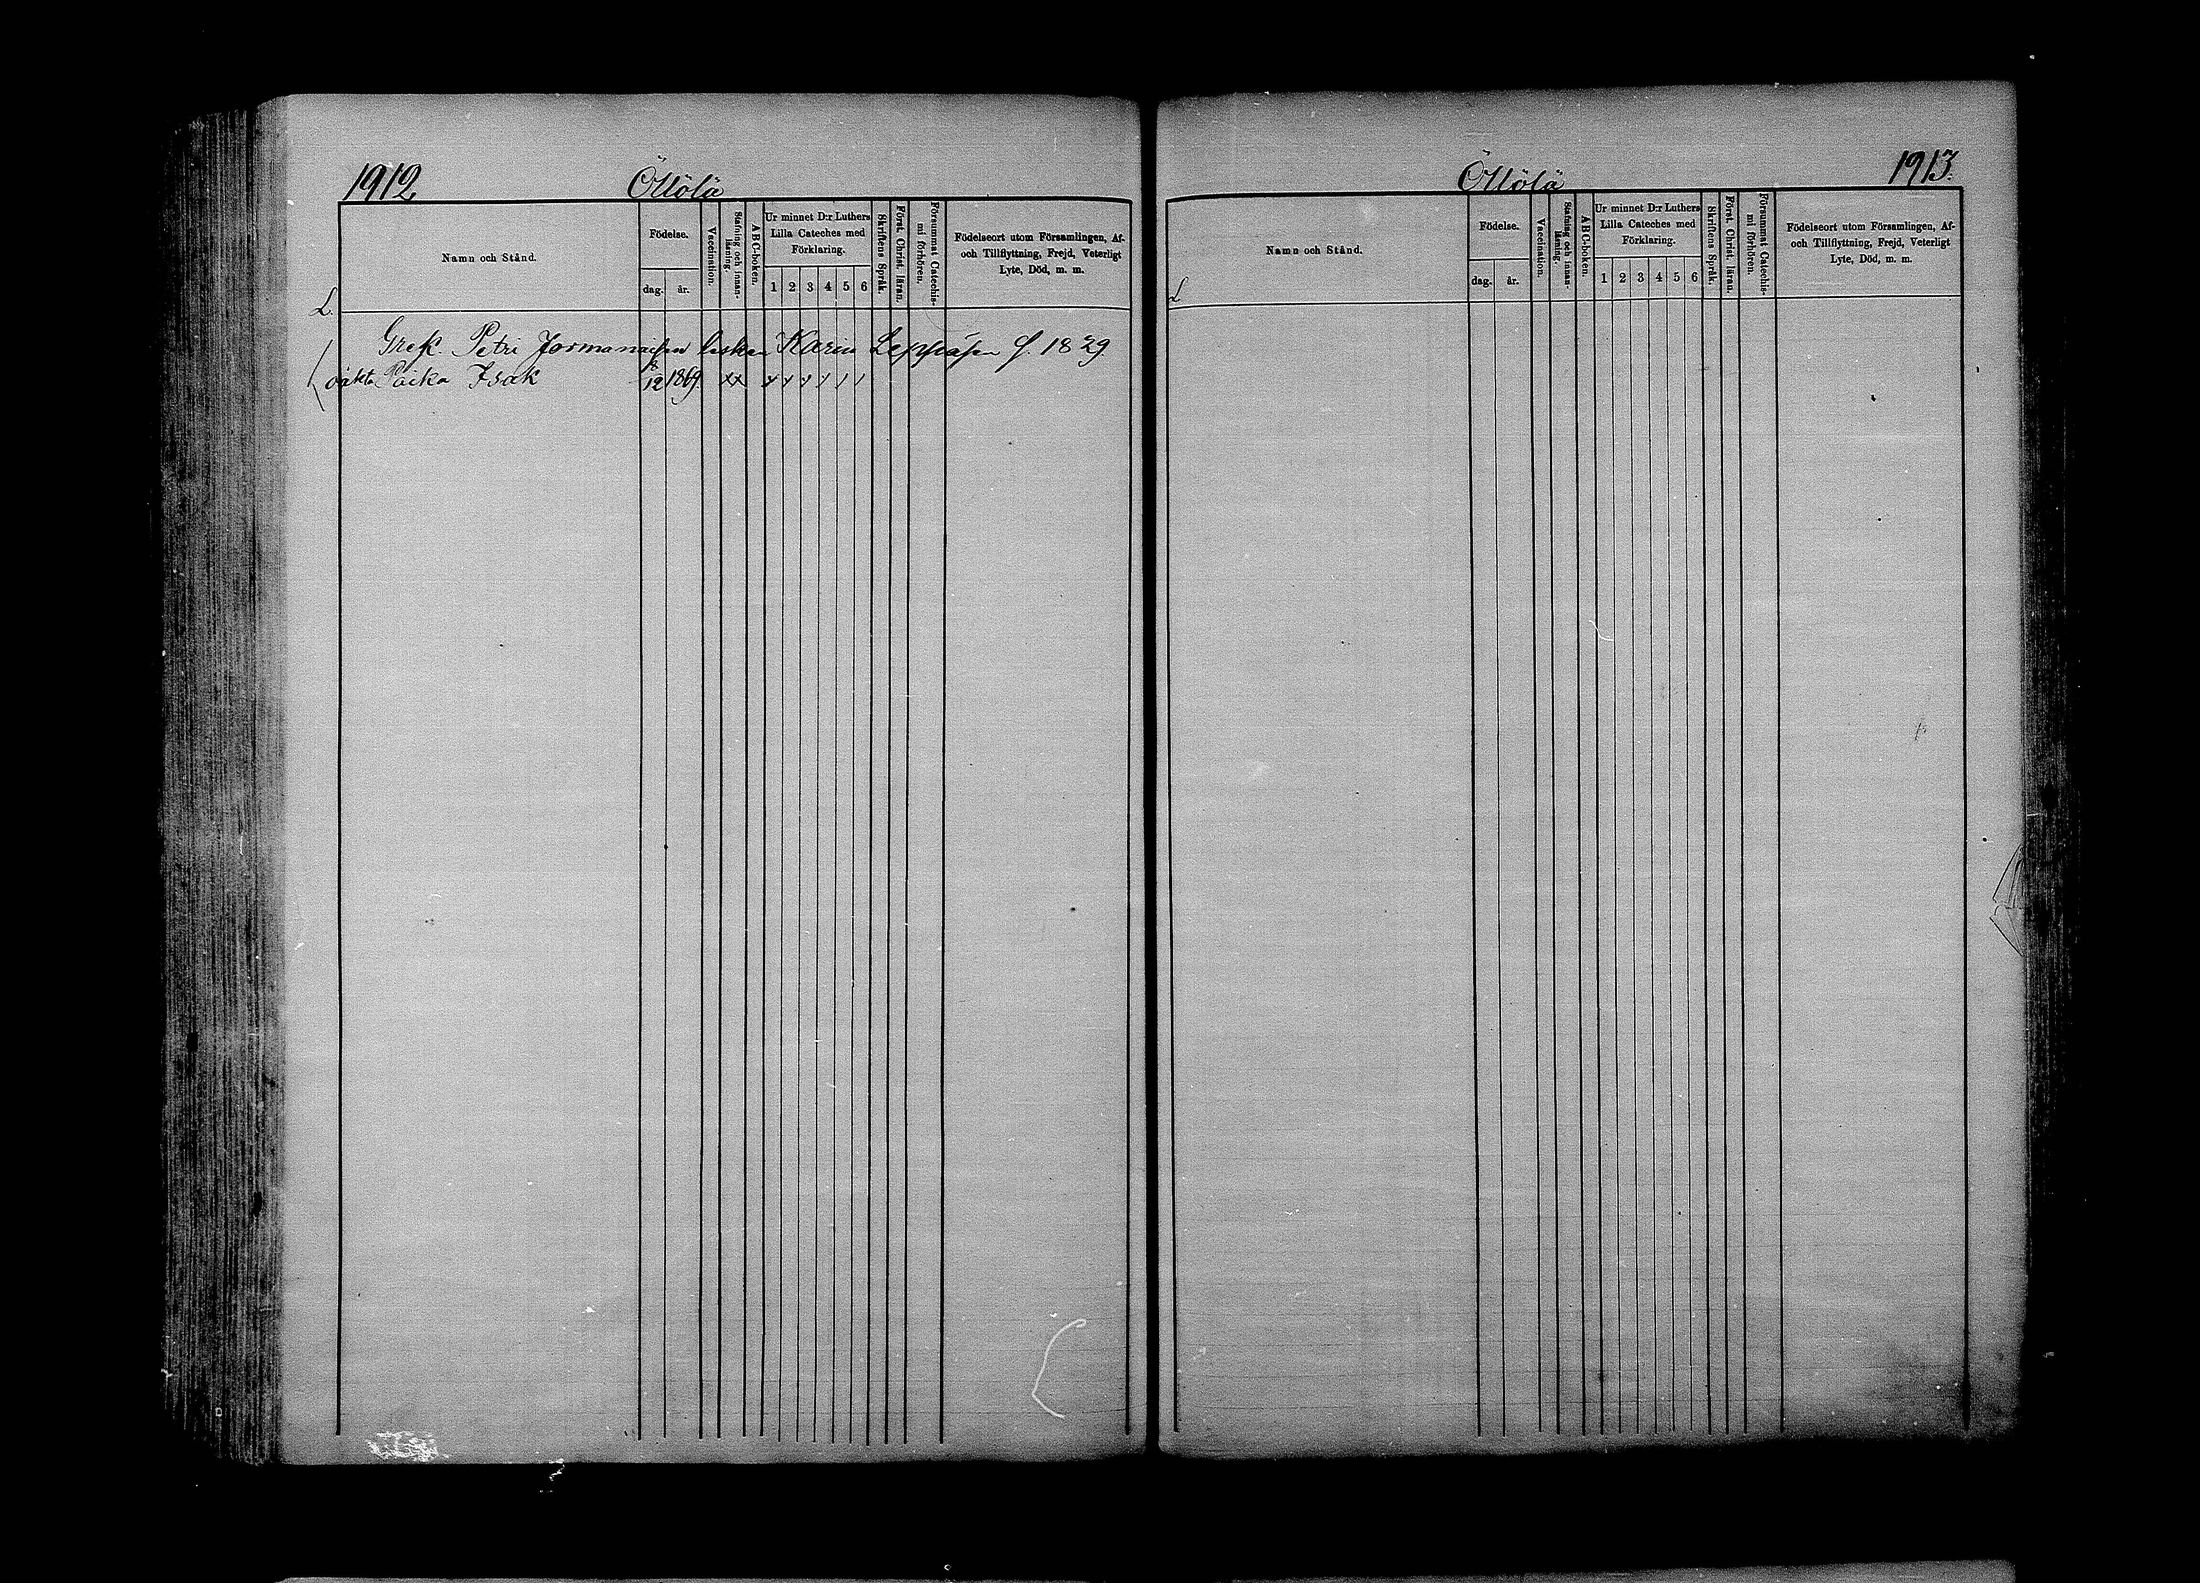 1912 Öllölä
Namn och Stånd. Födelse. dag. år. Vaccination. Stafning och innanläsning. ABC-boken. Ur minnet D:r Luthers Lilla Cateches med Förklaring. 1 2 3 4 5 6 Skriftens Språk. Först. Christ. läran. Försummat Catechismi förhören. Födelseort utom Församlingen, Af- och Tillflyttning, Frejd, Veterligt Lyte, Död, m. m.
L.
Grek. Petri Jormanaisen lesken Karin Leppäsen f. 1829
oäkta Poika Isak 8/12 1869. xx
Öllölä 1913.
Namn och Stånd. Födelse. dag. år. Vaccination. Stafning och innanläsning. ABC-boken. Ur minnet D:r Luthers Lilla Cateches med Förklaring. 1 2 3 4 5 6 Skriftens Språk. Först. Christ. läran. Försummat Catechismi förhören. Födelseort utom Församlingen, Af- och Tillflyttning, Frejd, Veterligt Lyte, Död, m. m.
L